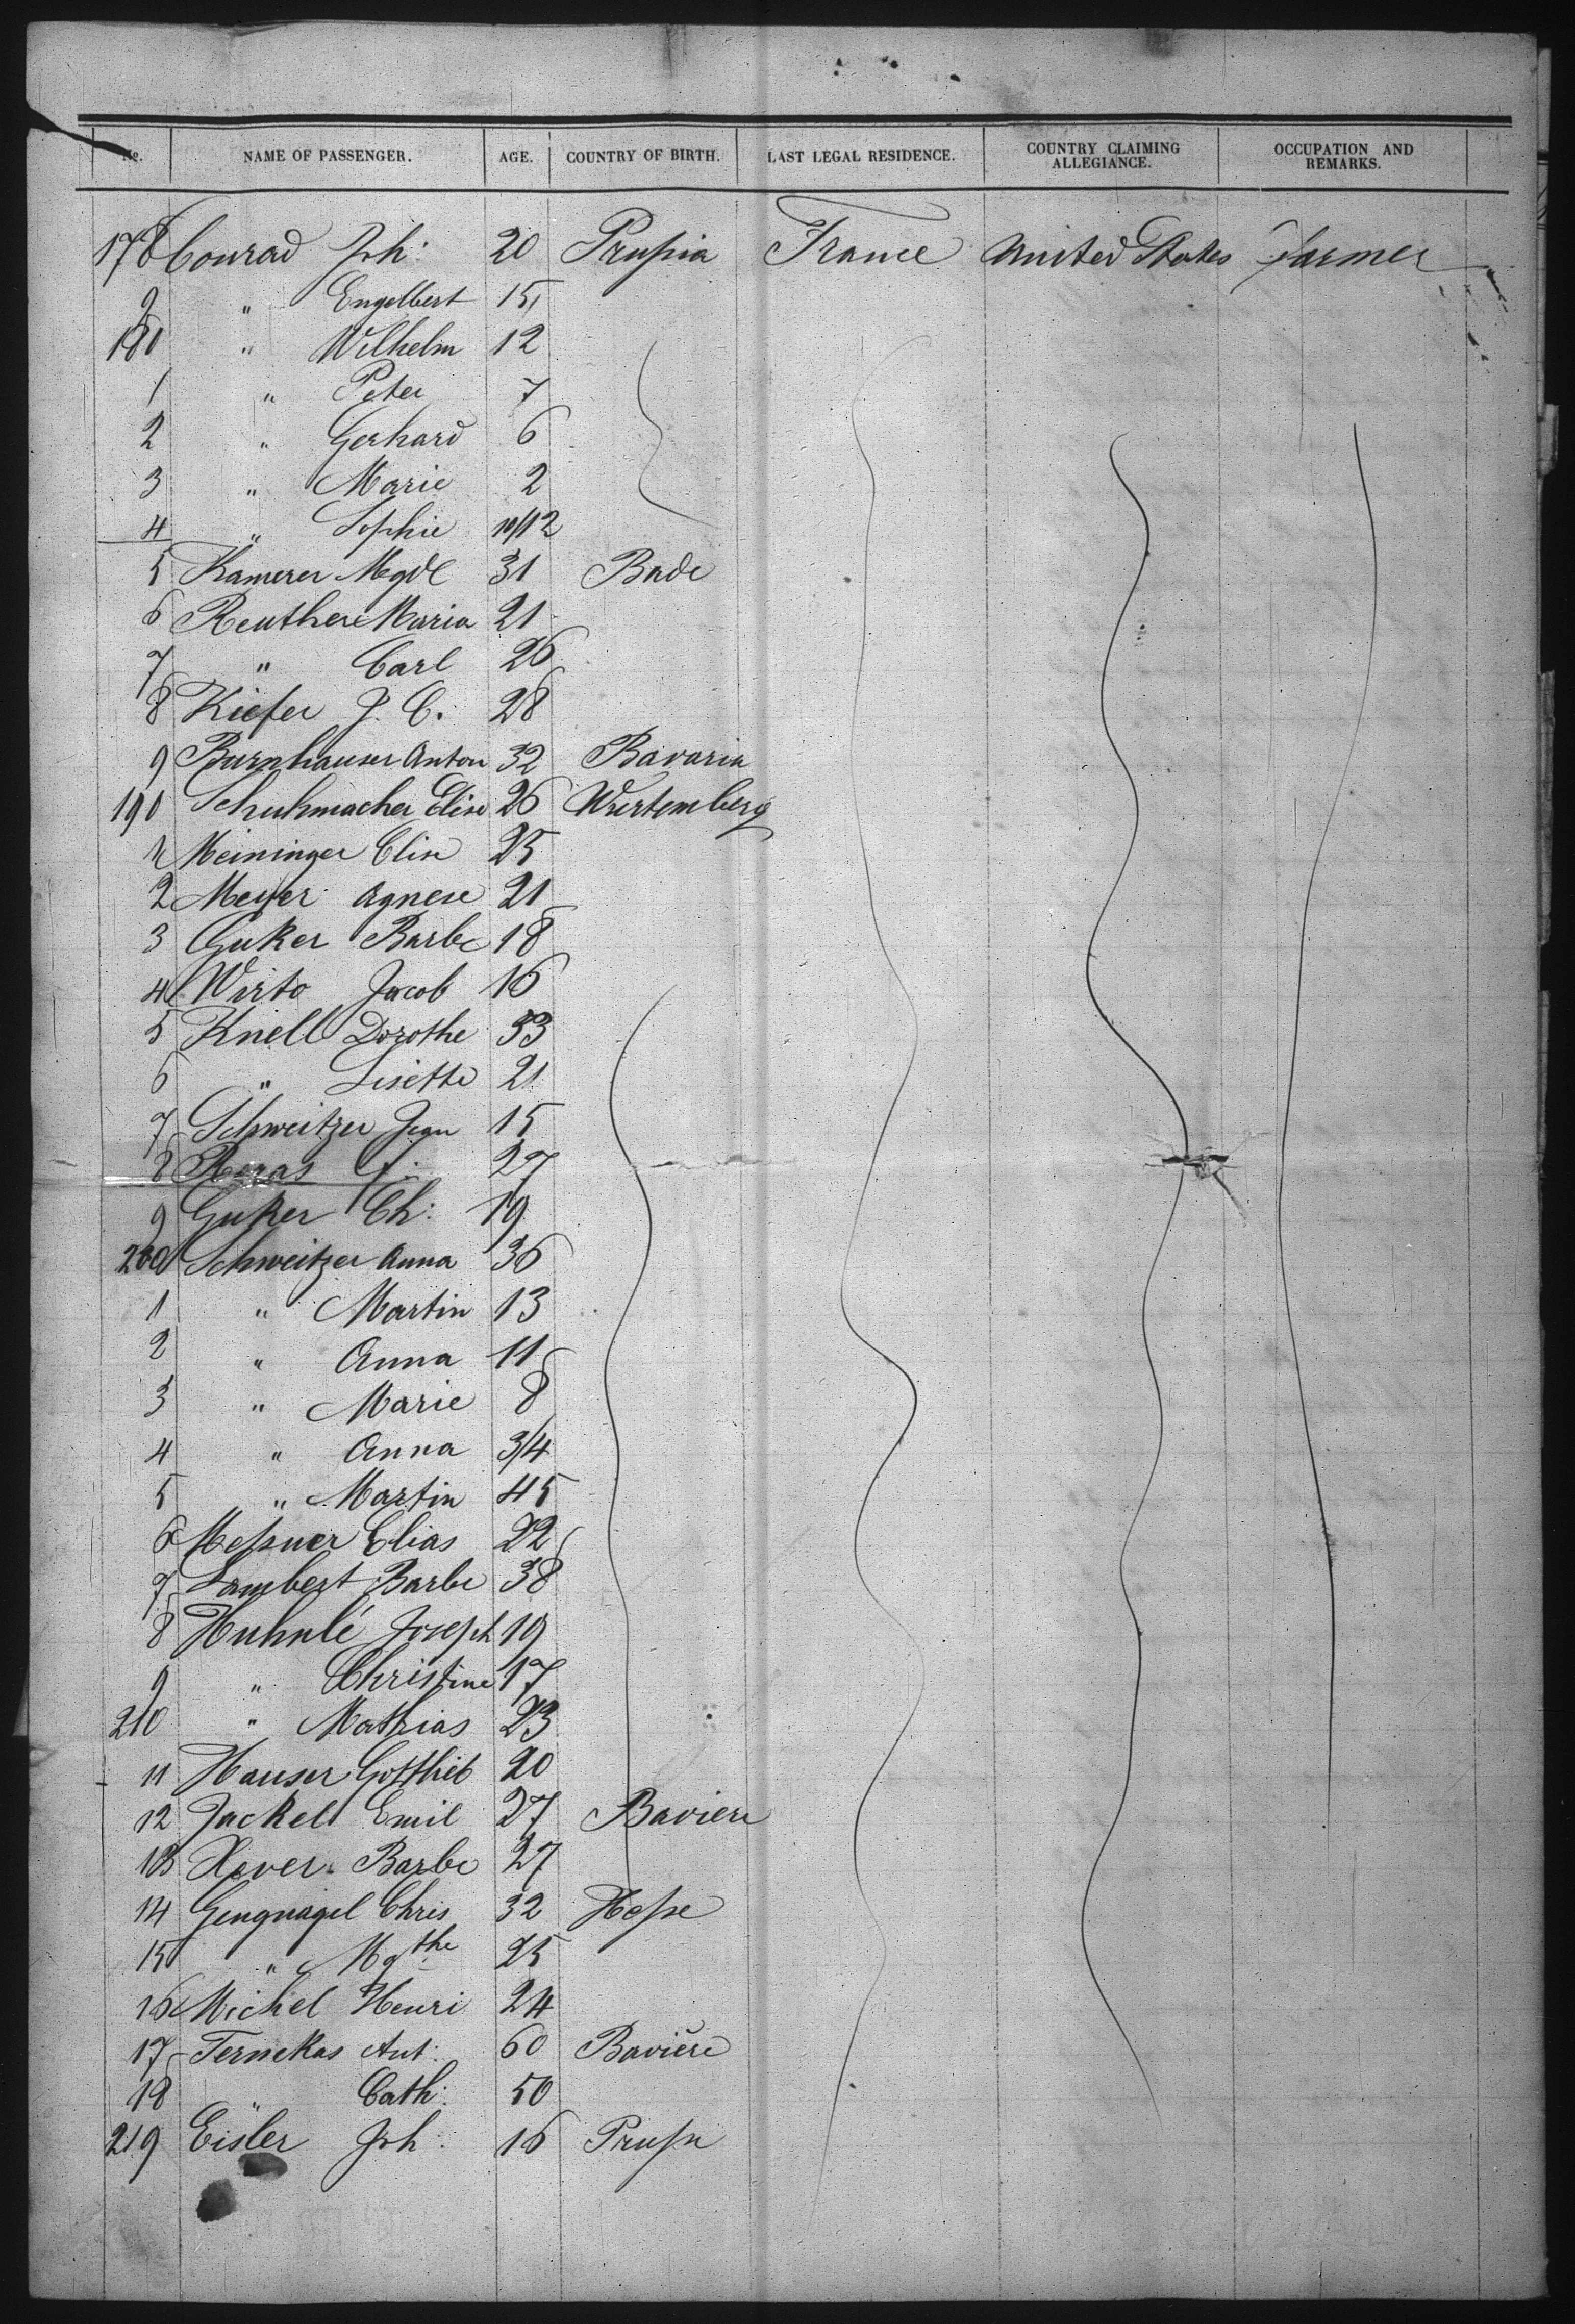 No. NAME OF PASSENGER. AGE. COUNTRY OF BIRTH. LAST LEGAL RESIDENCE. COUNTRY CLAIMING ALLEGIANCE. OCCUPATION AND REMARKS.
178 Conrad Joh: 20 Prussia France United States Farmer
9 " Engelbert 15
180 " Wilhelm 12
1 " Peter 7
2 " Gerhard 6
3 " Marie 2
4 " Sophie 10/12
5 Kamerer Mgde 31 Bade
6 Reuthere Maria 21
7 " Carl 26
8 Kiefer J. C. 28
9 Burnhauser Anton 32 Bavaria
190 Schuhmacher Elise 26 Wurtemberg
1 Meininger Elise 25
2 Meyer Agnese 21
3 Guker Barbe 18
4 Wirto Jacob 16
5 Knell Dorothe 33
6 " Lisette 21
7 Schweitzer Jean 15
8 27
9 Guker Ch: 19
200 Schweitzer Anna 36
1 " Martin 13
2 " Anna 11
3 " Marie 8
4 " Anna 3/4
5 " Martin 45
6 Messner Elias 22
7 Lambert Barbe 38
8 Huhnlé Joseph 19
9 " Christine 17
210 " Mathias 23
11 Hauser Gottlieb 20
12 Jackel Emil 27 Baviere
13 Xaver Barbe 27
14 Gengnagel Chris 32 Hesse
15 " Mgthe 25
16 Michel Henri 24
17 Ternekas Ant: 60 Bavière
18 " Cath: 50
219 Eisler Joh: 16 Pruss